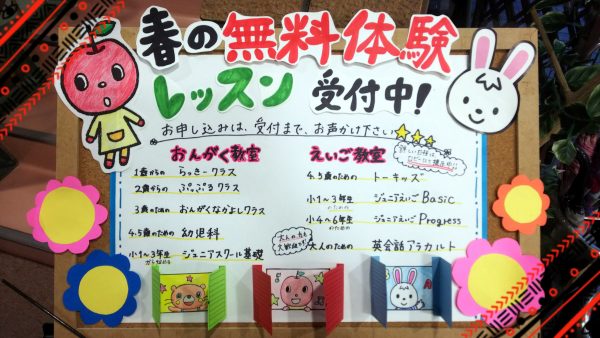 春の無料体験
レッスン 受付中!
お申し込みは、受付まで、お声かけ下さい
おんがく教室
1歳からの らっきークラス
2歳からの ぷっぷるクラス
3歳のための おんがくなかよしクラス
4.5歳のための 幼児科
小1〜3年生 ジュニアスクール基礎
大人の方も
大歓迎です!
えいご教室
4.5歳のための トーキッズ
小1〜3年生 ジュニアえいごBasic
のための
小4〜6年生 ジュニアえいごProgress
のための
大人のための 英会話アラカルト